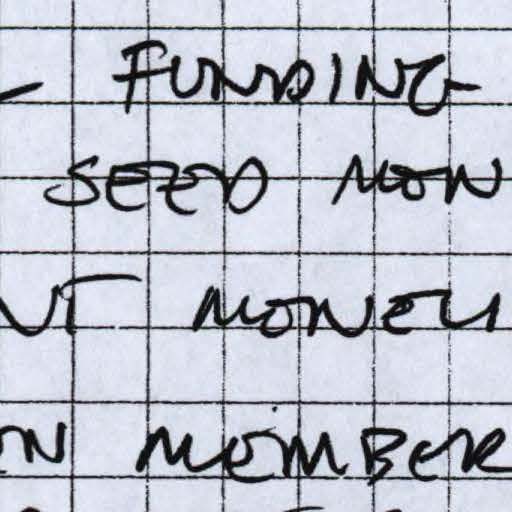 - FUNDING
SEED MON
NT MONEY
ON MEMBER